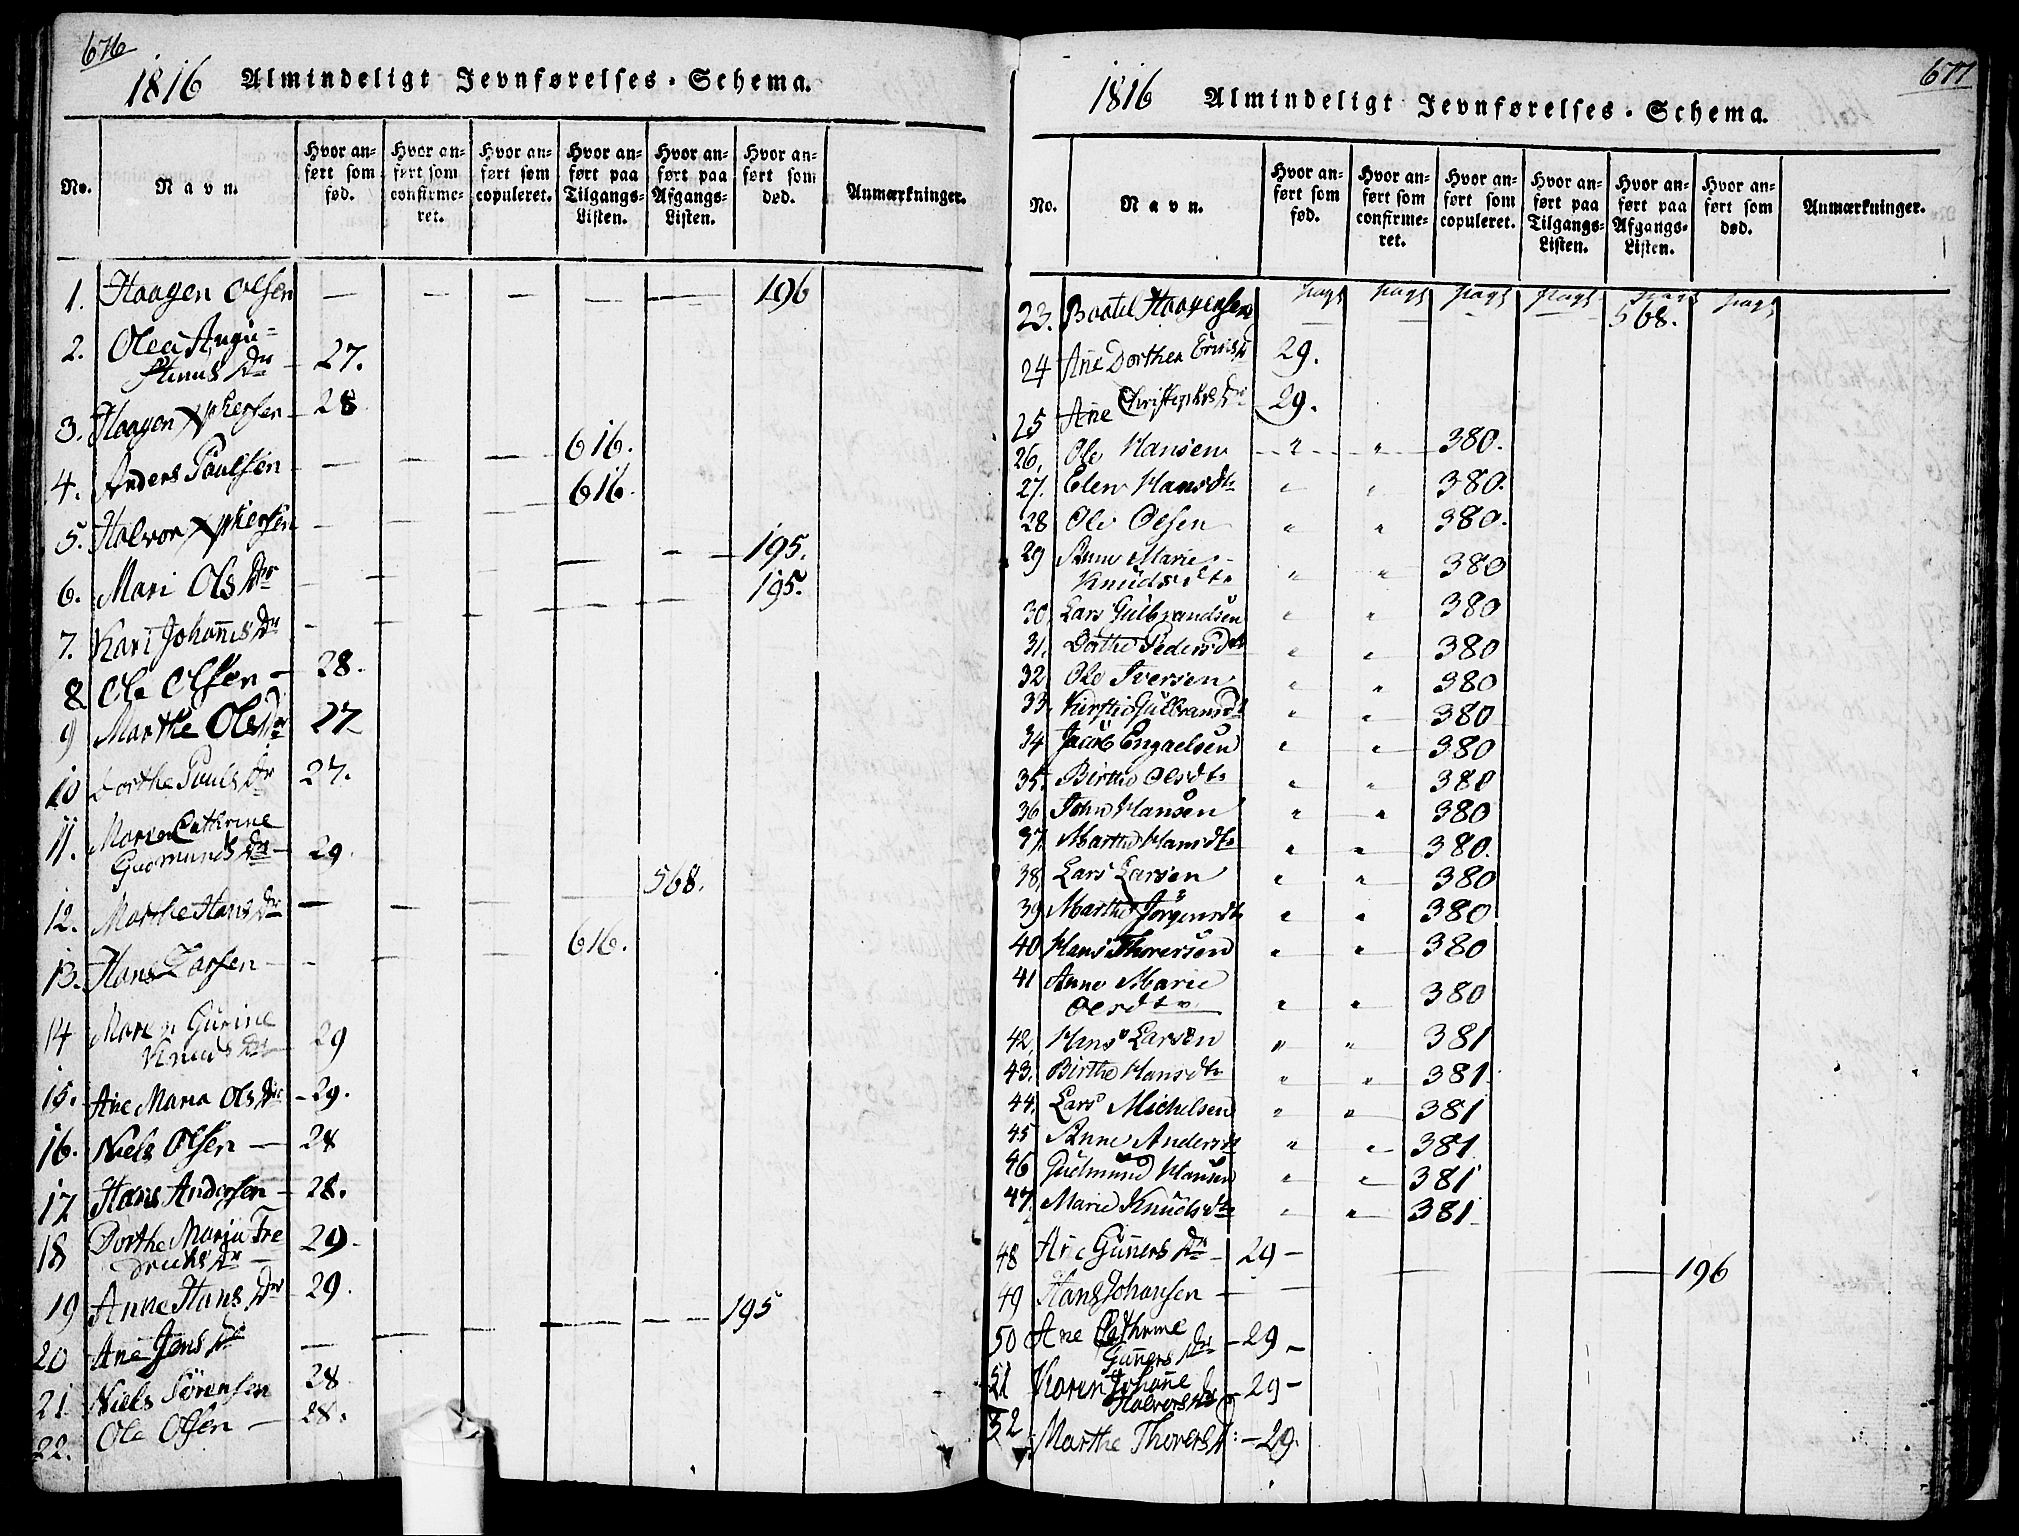 676
1816 Almindeligt Jevnførelses-Schema.
No. Navn. Hvor anført som fød. Hvor anført som confirmeret. Hvor anført som copuleret. Hvor anført paa Tilgangs-Listen. Hvor anført paa Afgangs-Listen. Hvor anført som død. Anmærkninger.
1. Haagen Olsen — — — — — 196
2. Olea Augu=
stinus Dr 27.
3. Haagen Xphersen 28
4. Anders Paulsen — — — 616.
5. Halvor Xphersen — — — 616.
6. Mari Ols Dr — — — — — 195.
7. Kari Johañes Dr — — — — — 195.
8 Ole Olsen — 28.
9 Marthe Ols Dr 27
10 Dorthe Pouls Dr 27.
11. Maren Cathrine
Gudmunds Dr — 29.
12. Marthe Hans Dr — — — — 568.
13. Hans Larsen — — — — 616.
14 Maren Gurine
Knuds Dr 29
15. Ane Maria Ols Dr — 29.
16. Niels Olsen — 28
17 Hans Andersen — 28.
18 Dorthe Maria Fre
dricks Dr — 29.
19 Anne Hans Dr 29.
20 Ane Jens Dr — — — — — 195
21. Niels Sörensen 28
22. Ole Olsen — 28.
677
1816 Almindeligt Jevnførelses-Schema.
No. Navn. Hvor anført som fød. Hvor anført som confirmeret. Hvor anført som copuleret. Hvor anført paa Tilgangs-Listen. Hvor anført paa Afgangs-Listen. Hvor anført som død. Anmærkninger.
23. Haagensen — — — — 568.
24 Ane Dorthea 29.
25 Ane Christophers Dr 29.
26. Ole Hansen " " 380.
27. Elen Hansdtr " " 380.
28 Ole Olsen " " 380.
29 Anne Marie
Knudsdtr " " 380
30. Lars Gulbrandsen " " 380
31. Dorthe Pedersdtr " " 380
32 Ole Iversen " " 380
33. Kirsti Gulbransdt " " 380
34 Jacob Engaelsen " " 380
35. Birthe Olsdtr " " 380
36. John Hansen " " 380
37. Marthe Hansdtr " " 380.
38. Lars Larsen " " 380
39 Marthe Jörgensdt " " 380
40 Hans Thoresen " " 380
41 Anne Marie
Olsdtr " " 380
42. Hans Larsen " " 381
43. Birthe Hansdtr " " 381.
44. Lars Michelsen " " 381
45 Anne Andersdt " " 381
46 Gudmund Hansen " " 381
47. Marie Knudsdtr " " 381.
48 Ane Guñers Dr — 29 —
49 Hans Johansen — — — — — 196
50 Ane Cathrine
Guñers Dr — 29 —
51 Karen Johañe
Halvors Dr — 29 —
52 Marthe Thorers Dr — 29.